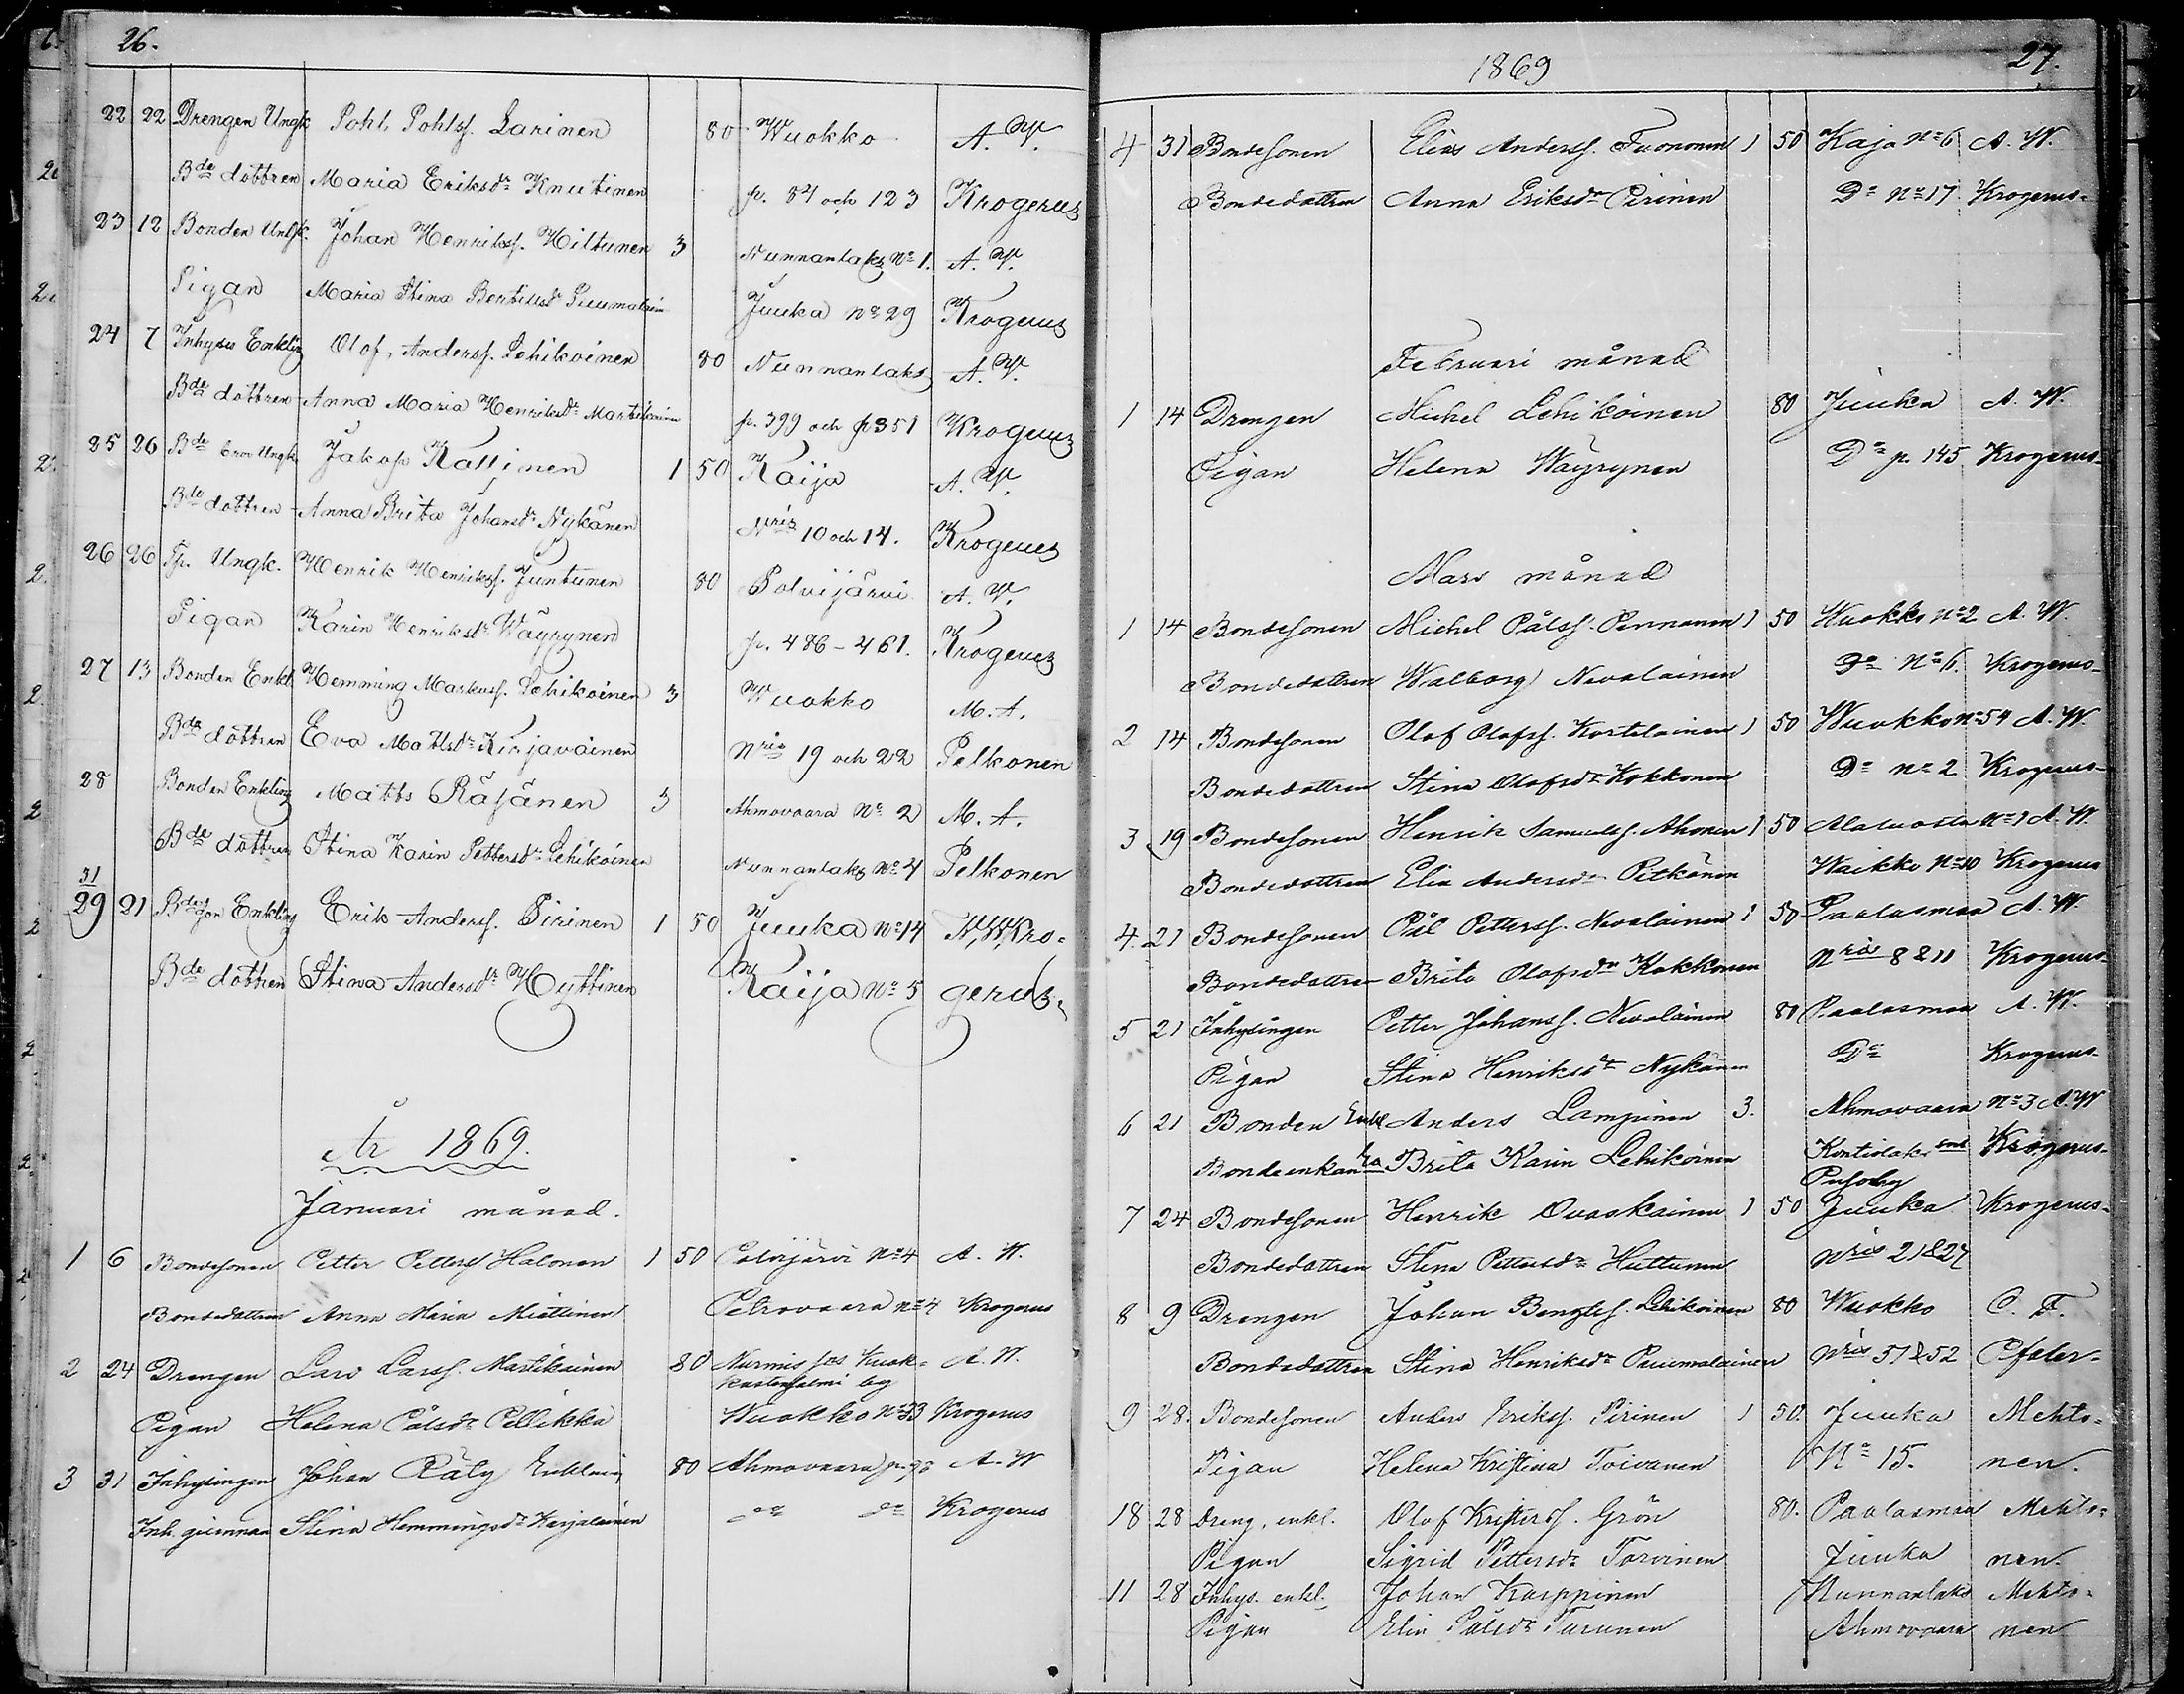 26.
22 22 Drengen Ungk Pohl Pohlss. Larinen 80 Wuokko A. W.
Bde dottren Maria Eriksdr Knutinen p. 84 och 123 Krogerus
23 12 Bonden Ungk. Johan Henrikss. Hiltunen 3 Nunnanlaks No 1. A. W.
Pigan Maria Stina Bertilsdr Puumalain Juuka No 29 Krogerus
24 7 Inhyses Enkling Olof Anderss. Lehikoinen 80 Nunnanlaks A. W.
Bde dottren Anna Maria Henriksdr Martikainen p. 399 och p 351 Krogerus
25 26 Bde Ungk Jakop Kassinen 1 50 Kaija A. W.
Bde dottren Anna Brita Johansdr Nykänen Nris 10 och 14. Krogerus
26 26 Tp. Ungk. Henrik Henrikss. Juntunen 80 Polvijärvi A. W.
Pigan Karin Henriksdr Wäyrynen p. 486 - 461. Krogerus
27 13 Bonden Enkl Hemming Markuss. Lehikoinen 3 Wuokko M. A.
Bde dottren Eva Mattsdr Kirjavainen Nris 19 och 22 Pelkonen
28 Bonden Enkling Matts Räsänen 3 Ahmovaara No 2 M. A.
Bde dottren Stina Karin Pettersdr Lehikoinen Nunnanlaks No 4 Pelkonen
31
29 21 Bdeson Enkling Erik Anderss. Pirinen 1 50 Juuka No 14 Kro=
Bde dottren Stina Andersdr Hyttinen Kaija No 5 gerus.
År 1869.
Januari månad.
1 6 Bondesonen Petter Petterss Halonen 1 50 Polvijärvi No 4 A. W.
Bondedottren Anna Maria Miettinen Petrovaara No 4 Krogerus
2 24 Drengen Lars Larss. Martikainen 80 Nurmis A. W.
Pigan Helena Pålsdr Pellikka Wuokko No 33 Krogerus
3 31 Inhysingen Johan Räty Enkling 80 Ahmovaara A. W
Inh. qvinnan Stina Hemmingsdr Karjalainen Do Do Krogerus
1869 27.
4 31 Bondesonen Elias Anderss. Tuononen 1 50 Kaja No 6 A. W.
Bondedottren Anna Eriksdr Pirinen Do No 17 Krogerus
Februari månad
1 14 Drengen Michel Lehikoinen 80 Juuka A. W.
Pigan Helena Wäyrynen Do p. 145 Krogerus
Mars månad
1 14 Bondesonen Michel Pålss. Pennanen 1 50 Wuokko No 2 A. W.
Bondedottren Walborg Nevalainen Do No 6. Krogerus
2 14 Bondesonen Olof Olofss. Kortelainen 1 50 Wuokko No 54 A. W.
Bondedottren Stina Olofsdr Kokkonen Do No 2 Krogerus
3 19 Bondesonen Henrik Samuelss. Ahonen 1 50 A. W.
Bondedottren Elin Andersdr Pitkänen Waikko No 10 Krogerus
4. 21 Bondesonen Pål Petterss. Nevalainen 1 50 Paalasmaa A. W.
Bondedottren Brita Olofsdr Kokkonen Nris 8 & 11 Krogerus
5 21 Inhysingen Petter Johanss. Nevalainen 80 Paalasmaa A. W.
Pigan Stina Henriksdr Nykänen Do Krogerus
6 21 Bonden Enkl Anders Lampinen 3. Ahmovaara No 3 A. W
Bondeenkan Brita Karin Lehikoinen Kontiolaks Krogerus
7 24 Bondesonen Henrik Ovaskainen 1 50 Juuka Krogerus
Bondedottren Stina Pettersdr Huttunen Nris 21 & 27
8 9 Drengen Johan Bengtss. Lehikoinen 80 Wuokko
Bondedottren Stina Henriksdr Puumalainen Nris 51 & 52
9 28. Bondesonen Anders Erikss. Pirinen 1 50. Juuka Mehto=
Pigan Helena Kristina Toivanen No 15. nen.
18 28 Dreng. enkl. Olof Kristerss. Grön 80. Paalasmaa Mehto=
Pigan Sigrid Pettersdr Torvinen Juuka nen.
11 28 Inhys. enkl. Johan Karppinen Nunnanlaks Mehto=
Pigan Elin Pålsdr Turunen Ahmovaara nen